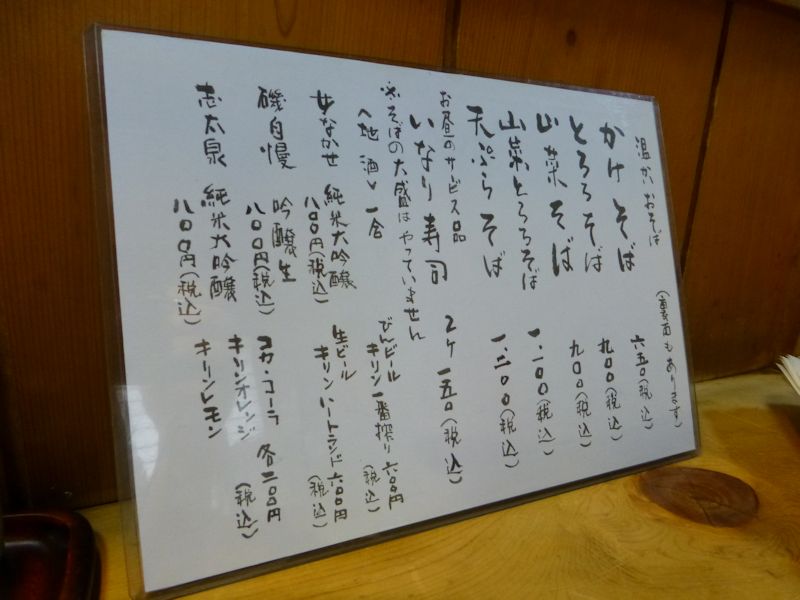 温かいおそば (裏面もあります)
かけそば 六五〇(税込)
とろろそば 九〇〇(税込)
山菜そば 九〇〇(税込)
山菜とろろそば 一、一〇〇(税込)
天ぷらそば 一、二〇〇(税込)
お昼のサービス品
いなり寿司 2ケ 一五〇(税込)
※そばの大盛はやっていません
<地酒> 一合
女なかせ 純米大吟醸
八〇〇円(税込)
磯自慢 吟醸生
八〇〇円(税込)
志太泉 純米大吟醸
八〇〇円(税込)
びんビール
キリン一番搾り 六〇〇円
(税込)
生ビール
キリンハートランド 六〇〇円
(税込)
コカ・コーラ 各二〇〇円
キリンオレンジ (税込)
キリンレモン